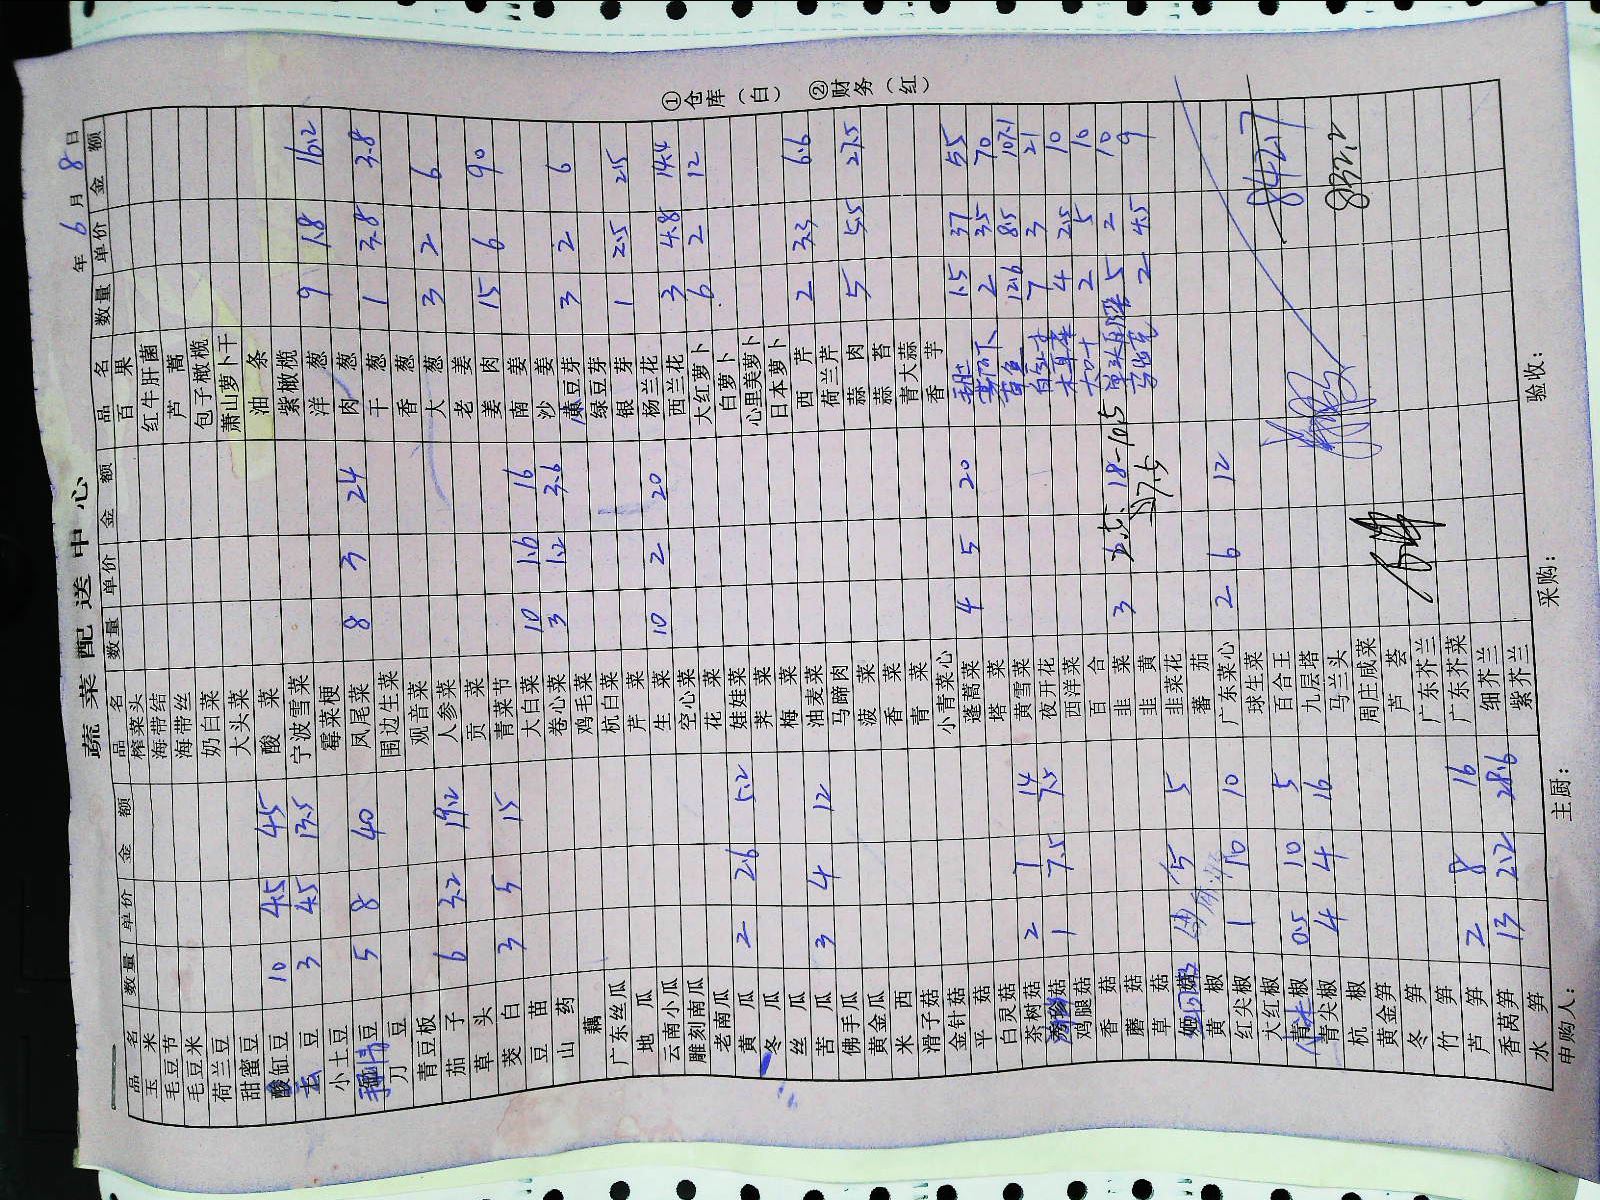 蔬菜配送中心
年 6 月 8 日
品名 数量 单价 金额 品名 数量 单价 金额 品名 数量 单价 金额
玉米 榨菜头 百果
毛豆节 海带结 红牛肝菌
毛豆米 海带丝 芦蒿
荷兰豆 奶白菜 包子橄榄
甜蜜豆 大头菜 萧山萝卜干
豇豆 10 4.5 45 酸菜 油条
豆 3 4.5 13.5 宁波雪菜 紫橄榄
小土豆 霉菜梗 洋葱 9 1.8 16.2
豆 5 8 40 凤尾菜 8 3 24 肉葱 1 3.8 3.8
刀豆 围边生菜 干葱
青豆板 观音菜 香葱 3 2 6
茄子 6 3.2 19.2 人参菜 大葱
草头 贡菜 老姜 15 6 90
茭白 3 5 15 青菜节 姜肉
豆苗 大白菜 10 1.6 16 南姜
山药 卷心菜 3 1.2 3.6 沙姜 3 2 6
藕 鸡毛菜 黄豆芽
广东丝瓜 杭白菜 绿豆芽 1 2.5 2.5
地瓜 芹菜 银芽
云南小瓜 生菜 10 2 20 杨兰花 3 4.8 14.4
雕刻南瓜 空心菜 西兰花 6 2 12
老南瓜 花菜 大红萝卜
黄瓜 2 2.6 5.2 娃娃菜 白萝卜
冬瓜 荠菜 心里美萝卜
丝瓜 梅菜 日本萝卜 2 3.3 6.6
苦瓜 3 4 12 油麦菜 西芹
佛手瓜 马蹄肉 荷兰芹 5 5.5 27.5
黄金瓜 菠菜 蒜肉
米西 香菜 蒜苔
滑子菇 青菜 青大蒜
金针菇 小青菜心 香芋
平菇 蓬蒿菜 4 5 20 1.5 37 55
白灵菇 塔菜 2 35 70
茶树菇 2 7 14 黄雪菜 章鱼 12.6 8.5 107.1
菇 1 7.5 7.5 夜开花 7 3 21
鸡腿菇 西洋菜 木耳菜 4 2.5 10
香菇 百合 2 5 10
蘑菇 韭菜 3 18-10.5 7.5 5 2 10
草菇 韭黄 2 4.5 9
菇 5 5 韭菜花
黄椒 番茄
红尖椒 1 10 10 广东菜心 2 6 12
大红椒 球生菜
青椒 0.5 10 5 百合王 8427
青尖椒 4 4 16 九层塔
杭椒 马兰头 832.2
黄金笋 周庄咸菜
冬笋 芦荟
竹笋 广东芥兰
芦笋 2 8 16 广东芥菜
香莴笋 13 2.2 28.6 细芥兰
水笋 紫芥兰
申购人： 主厨： 采购： 验收：
①仓库（白） ②财务（红）